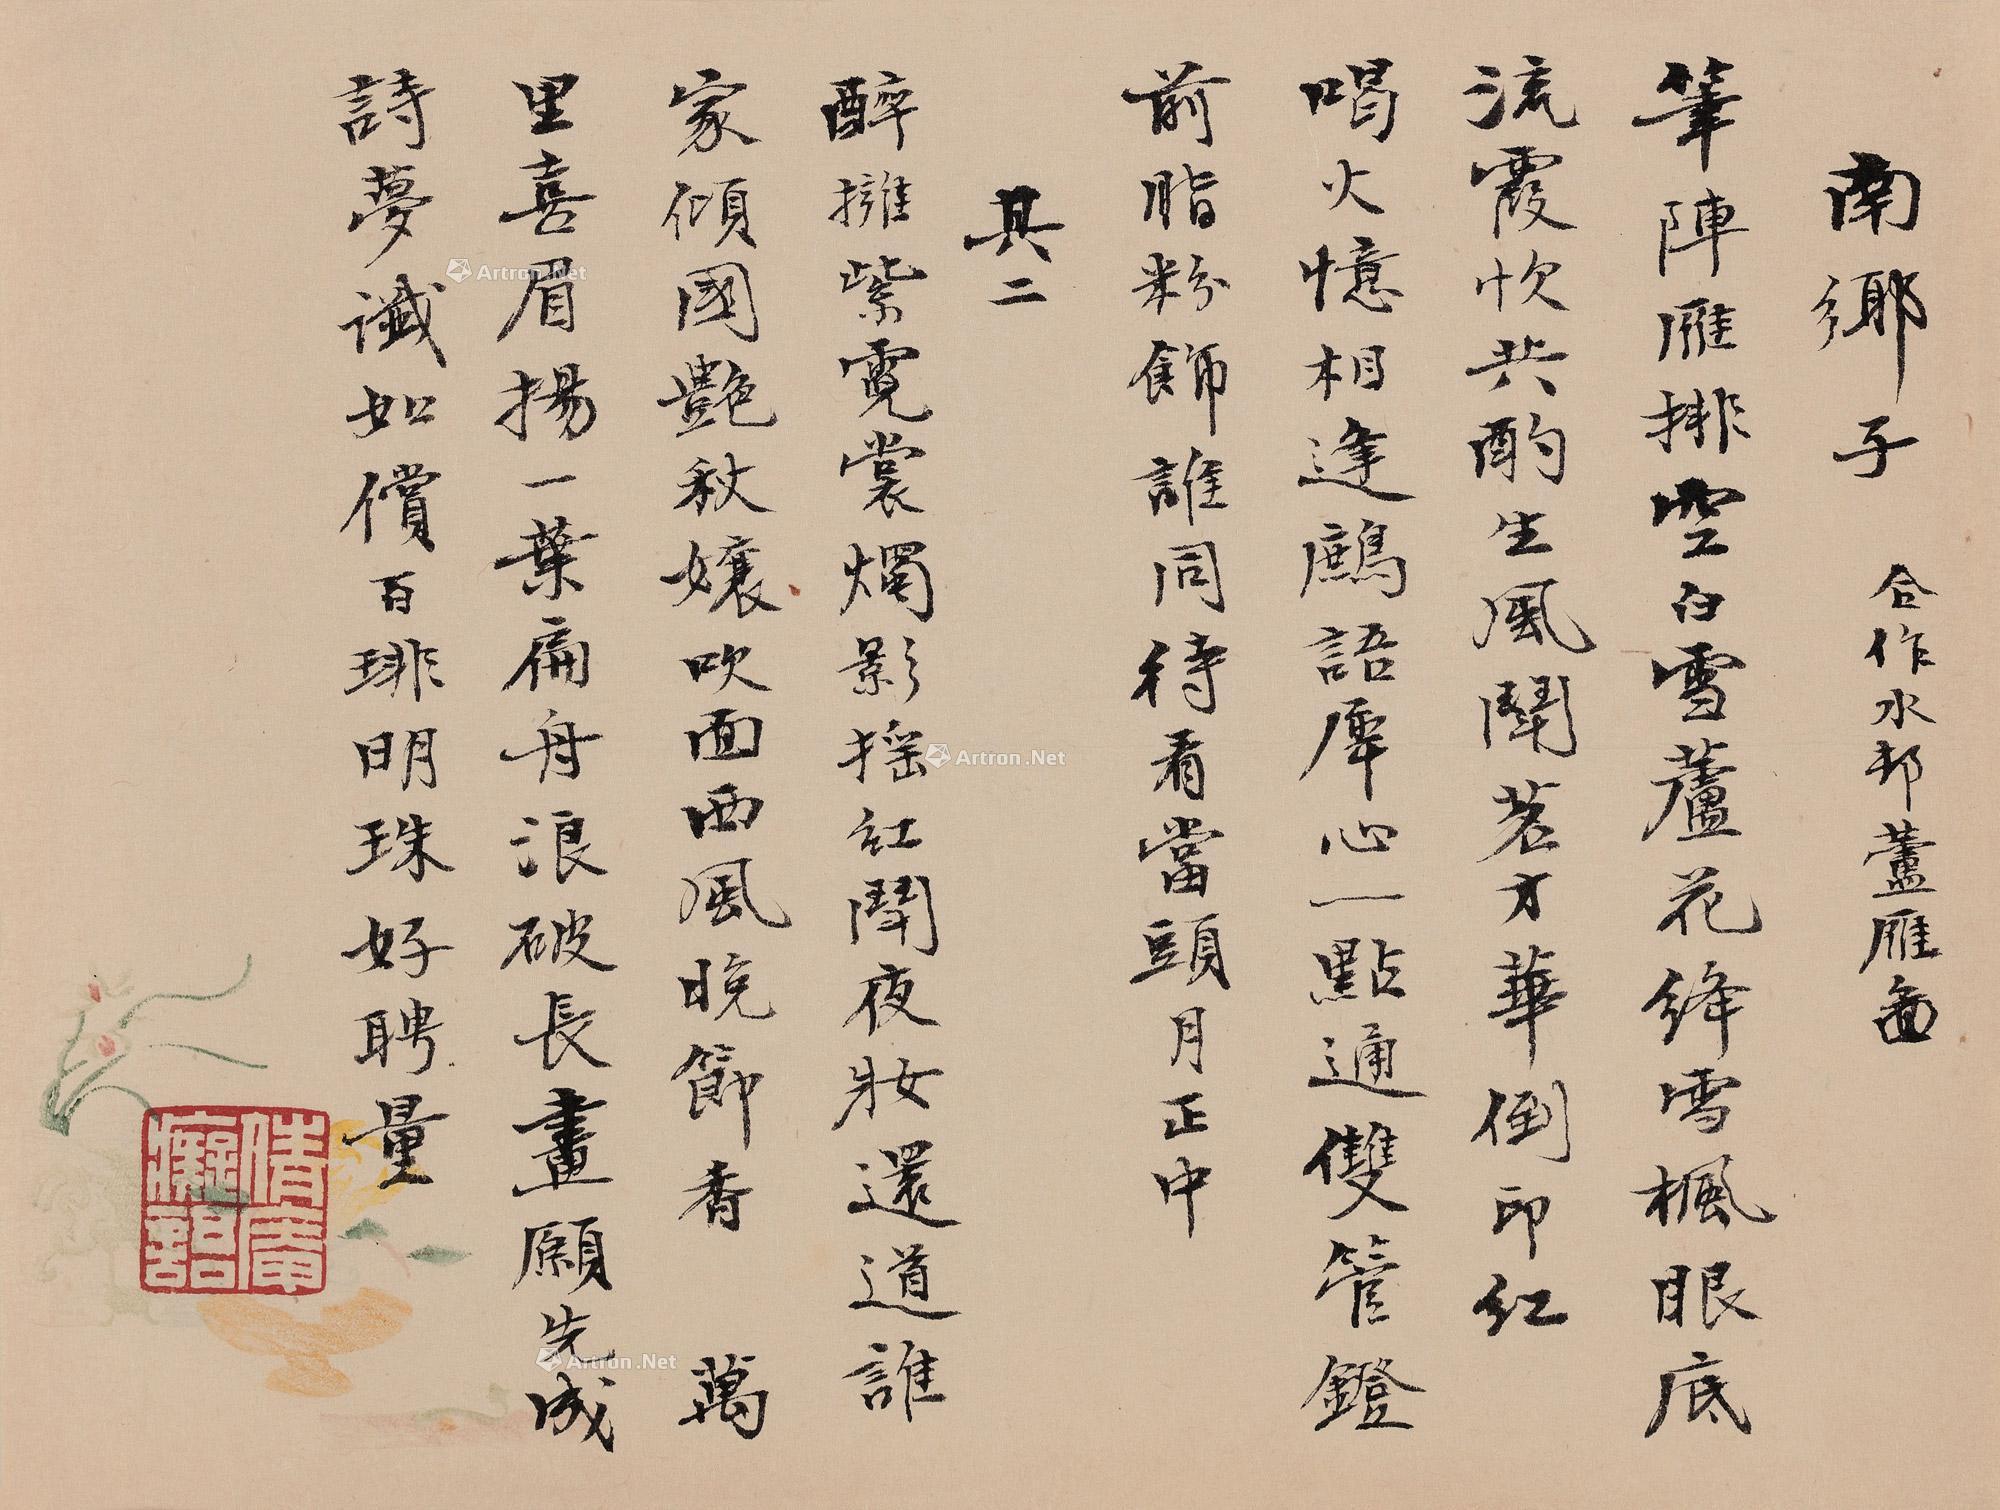 南鄉子 合作水邨蘆雁圖
筆陣雁排空白雪蘆花絳雪楓眼底
流霞欣共酌生風鬥茗才華倒印紅
喝火憶相逢鷓語犀心一點通雙管鐙
前脂粉飾誰同待看當頭月正中
其二
醉擁紫霓裳燭影搖紅鬥夜妝還道誰
家傾國艷秋孃吹面西風晚節香 萬
里喜眉揚一葉扁舟浪破長畫願先成
詩夢讖如償百琲明珠好聘量
倩庵
癡語
Artron.Net
Artron.Net
Artron.Net